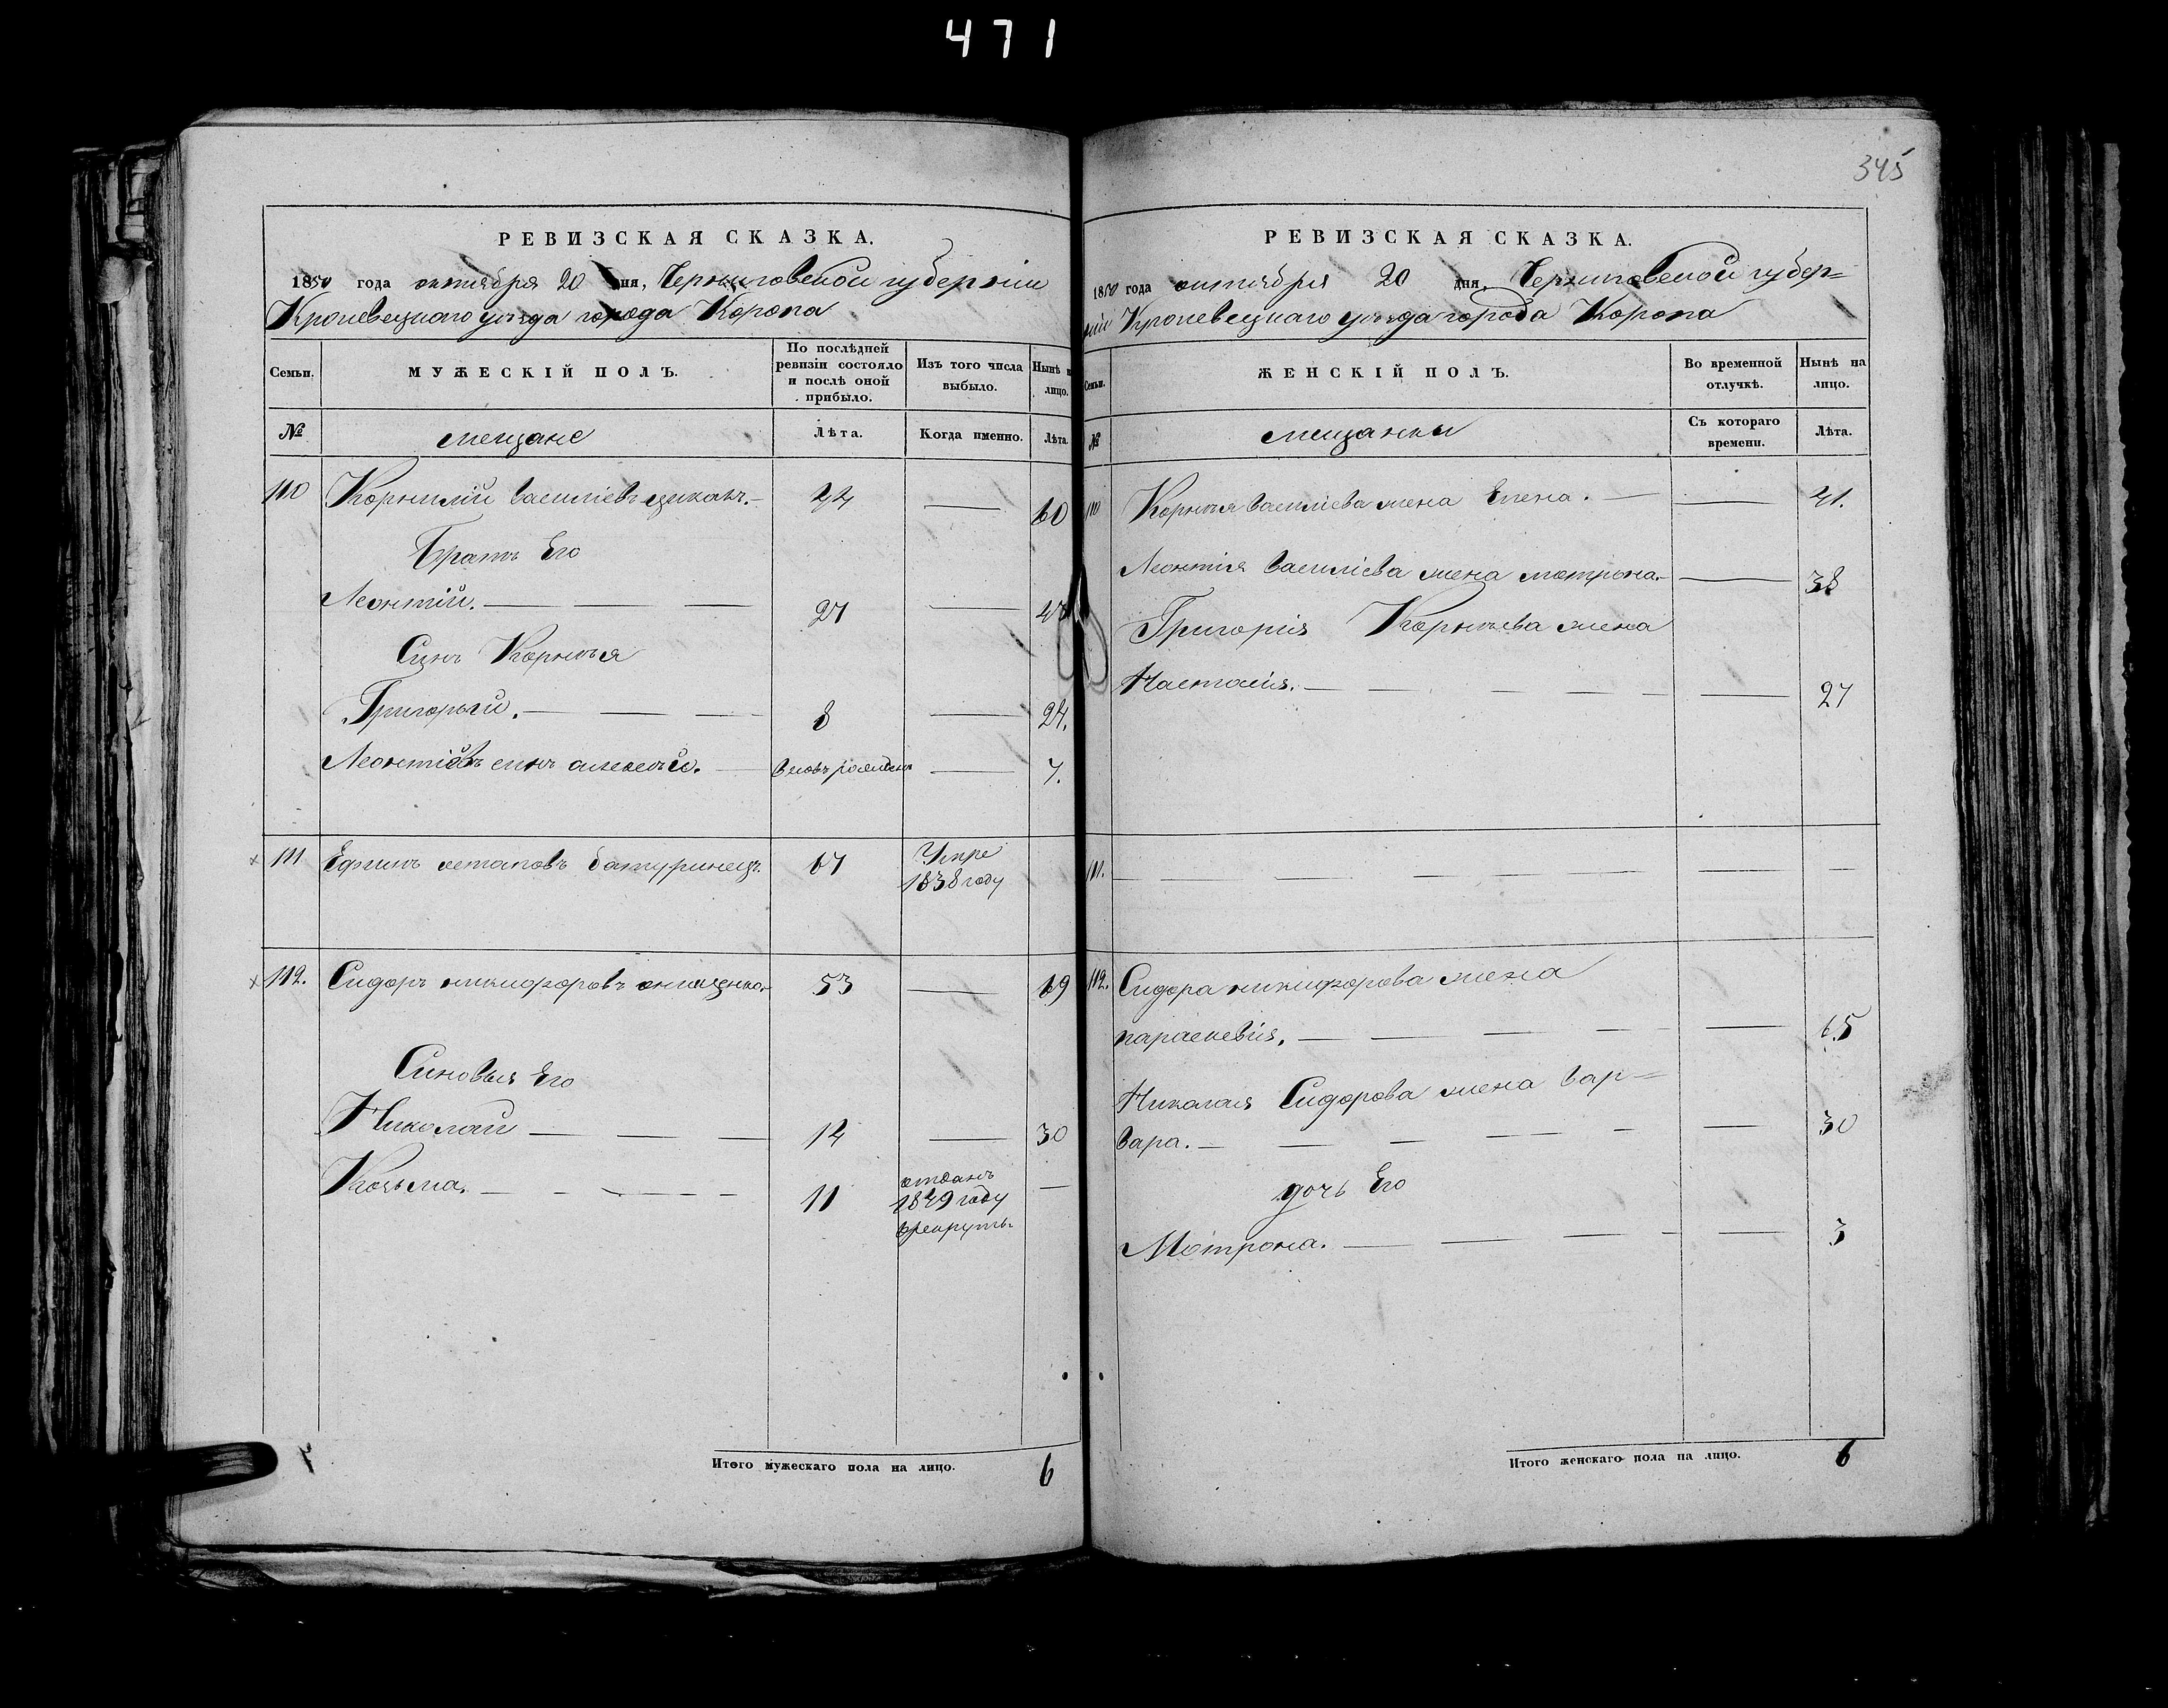 471
345
РЕВИЗСКАЯ СКАЗКА.
1850 года октября 20 дня, Черниговской губерніи
Кролевецкаго уезда города Коропа
Семьи.
МУЖЕСКІЙ ПОЛЪ.
По послѣдней ревизіи состояло и послѣ оной прибыло.
Изъ того числа выбыло.
Нынѣ на лицо.
№
мещане
Лѣта.
Когда именно.
Лѣта.
110 Корнилій Василіевъ 44 — 60
Братъ Его
Леонтій. — 27 —
Синъ Корнѣя
Григорьій. — 8 — 24.
Леонтіевъ синъ алексѣй. — вновь рожденъ — 7.
111 Ефимъ остаповъ батуринецъ. 67 Умре
1838 году
112. Сидоръ никифоровъ онищенко. 53 — 69
Синовья Его
Николай — 14 — 30
Козьма. — 11 отданъ —
1849 году
врекруты
Итого мужескаго пола на лицо. 6
РЕВИЗСКАЯ СКАЗКА.
1850 года октября 20 дня, Черниговской губер=
ніи Кролевецкаго уезда города Коропа
Семьи.
ЖЕНСКІЙ ПОЛЪ.
Во временной отлучкѣ.
Нынѣ на лицо.
№
мещанки
Съ котораго времени.
Лѣта.
110 Корнѣя Василіева жена Елена. — 41.
Леонтія Василіева жена мотрона. — 38
Григорія Корнѣева жена
Настасія. — 27
111. —
112. Сидора никифорова жена
параскевія. — 65
Николая Сидорова жена Вар=
вара. — 30
дочь Его
Мотрона. — 3
Итого женскаго пола на лицо. 6